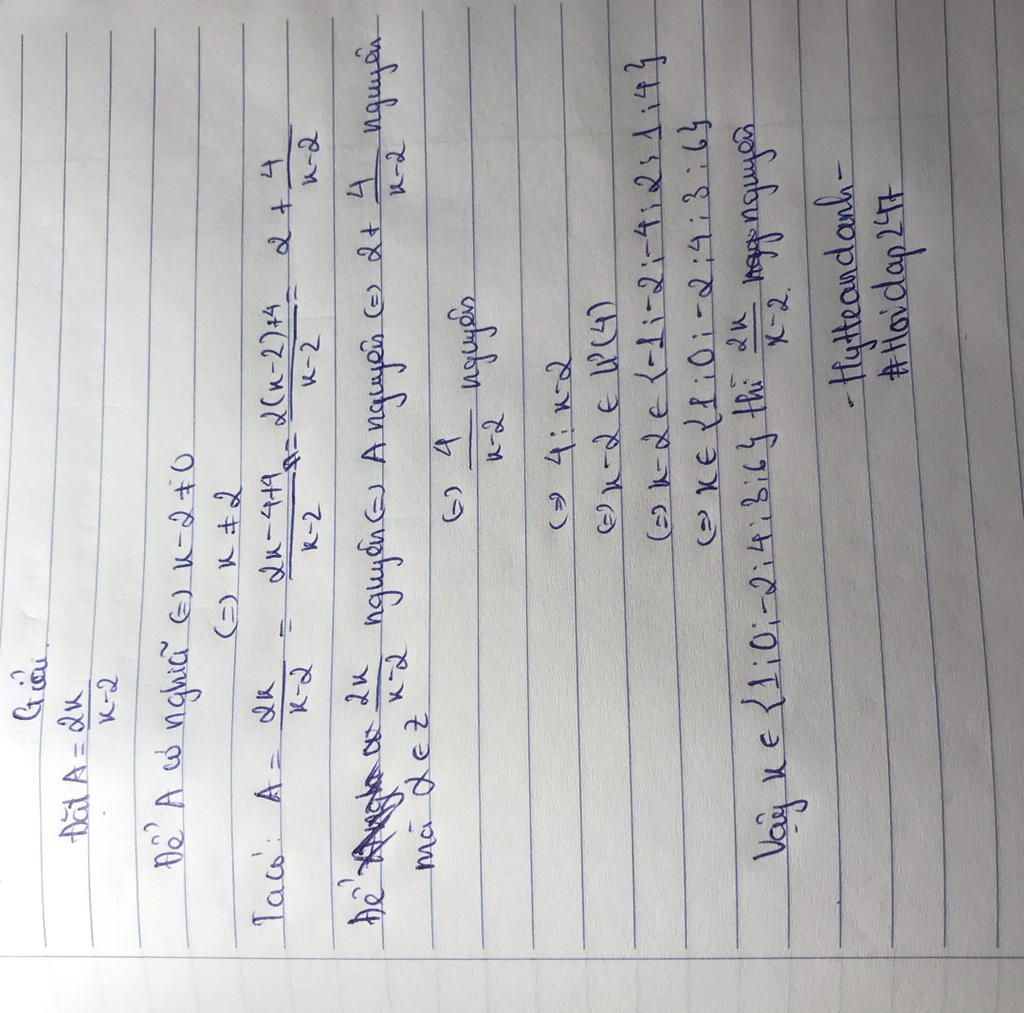 Giải.
Đặt A = 2x/x-2
Để A có nghĩa (=) x-2 ≠ 0
(=) x ≠ 2
Ta có: A = 2x/x-2 = 2x-4+4/x-2 = 2(x-2)+4/x-2 = 2 + 4/x-2
Để 2x/x-2 nguyên (=) A nguyên (=) 2 + 4/x-2 nguyên
mà 2 ∈ Z
(=) 4/x-2 nguyên
(=) 4 ⋮ x-2
(=) x-2 ∈ Ư(4)
(=) x-2 ∈ {-1;-2;-4;2;1;4}
(=) x ∈ {1;0;-2;4;3;6}
Vậy x ∈ {1;0;-2;4;3;6} thì 2x/x-2 nguyên
- Hytteandanh -
#Hoidap247